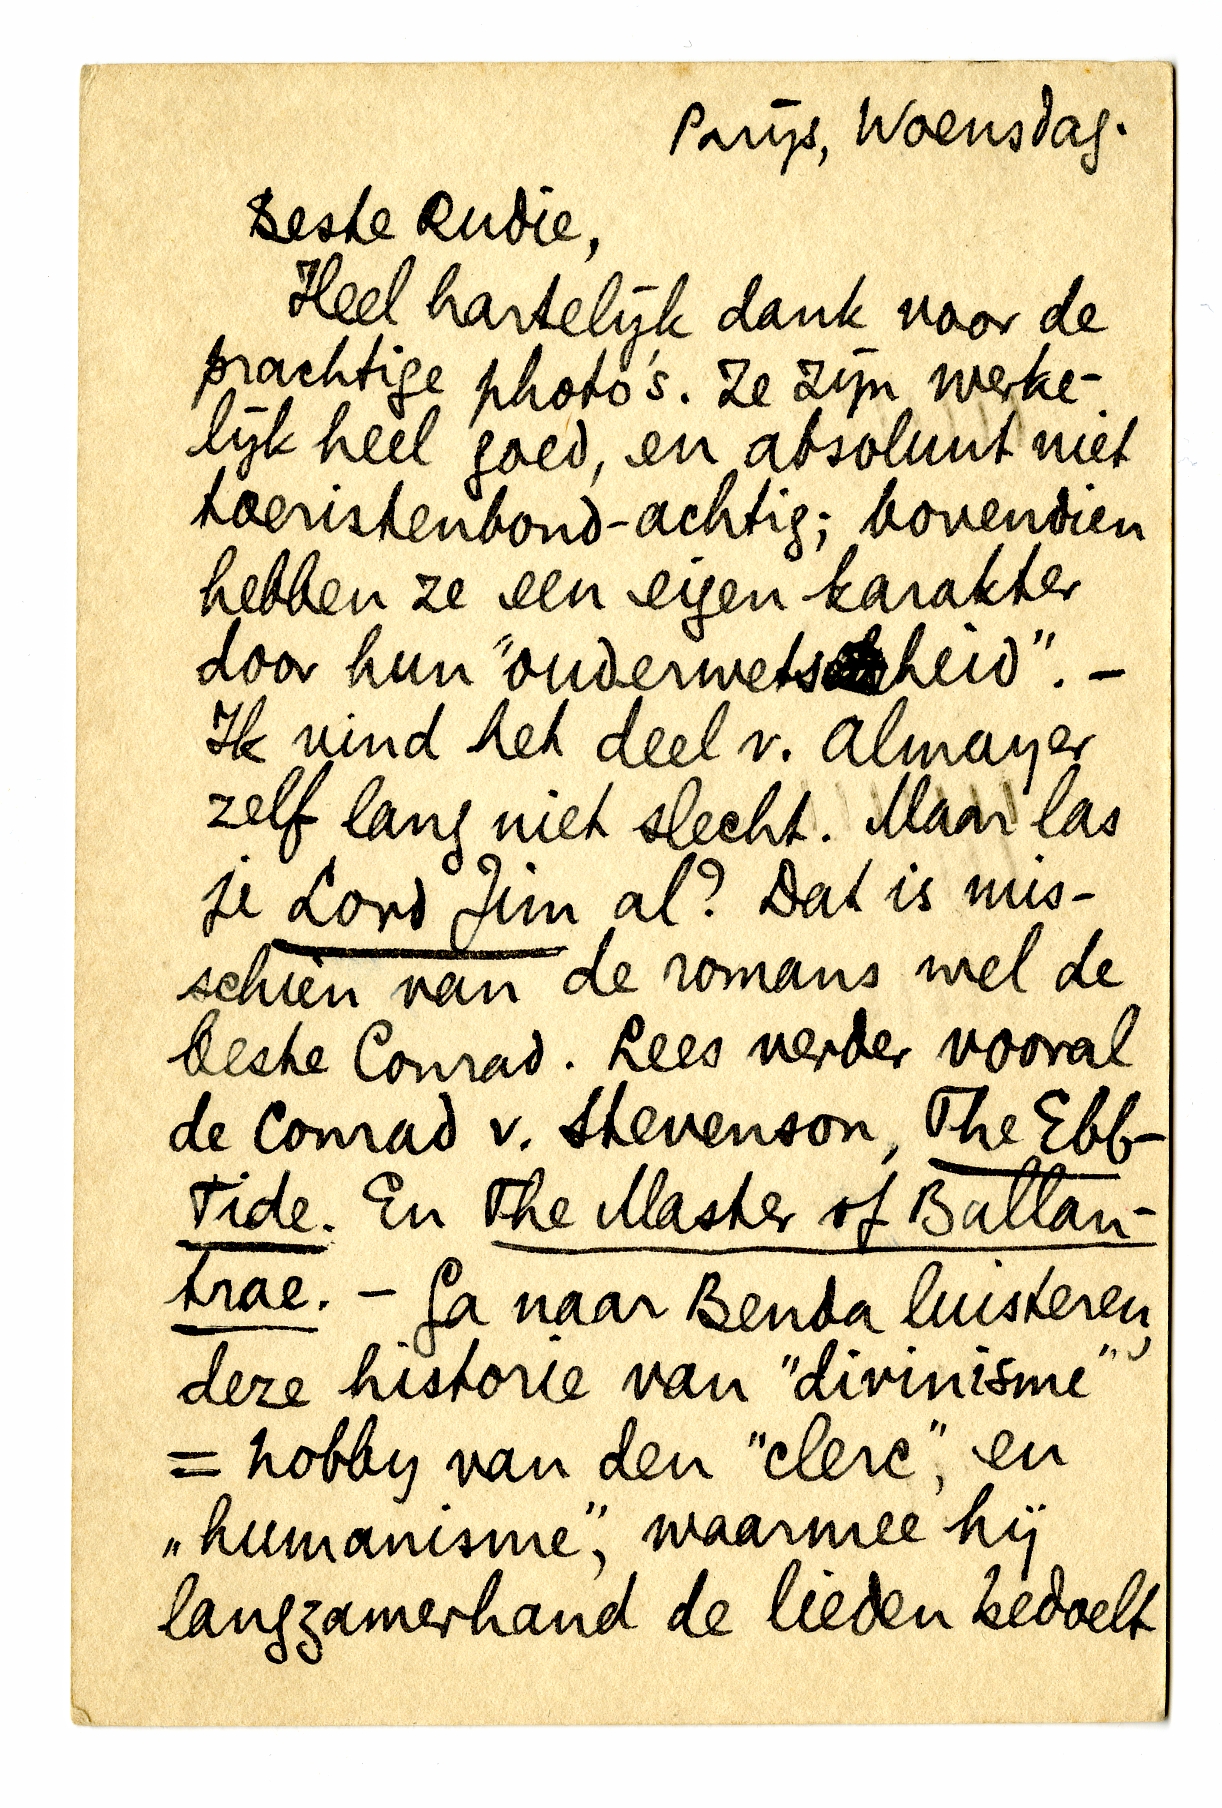 Parijs, Woensdag.
Beste Rudie,
Heel hartelijk dank voor de
prachtige photo's. Ze zijn werke-
lijk heel goed, en absoluut niet
toeristenbond-achtig; bovendien
hebben ze een eigen karakter
door hun "ouderwetsheid". —
Ik vind het deel v. Almayer
zelf lang niet slecht. Maar las
je Lord Jim al? Dat is mis-
schien van de romans wel de
beste Conrad. Lees verder vooral
de Conrad v. Stevenson, The Ebb-
Tide. En The Master of Ballan-
trae. — Ga naar Benda luisteren,
deze historie van "divinisme"
= hobby van den "clerc", en
„humanisme", waarmee hij
langzamerhand de lieden bedoelt